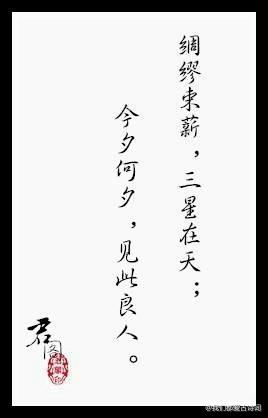 绸缪束薪，三星在天；
今夕何夕，见此良人。
君阁
@我们都爱古诗词